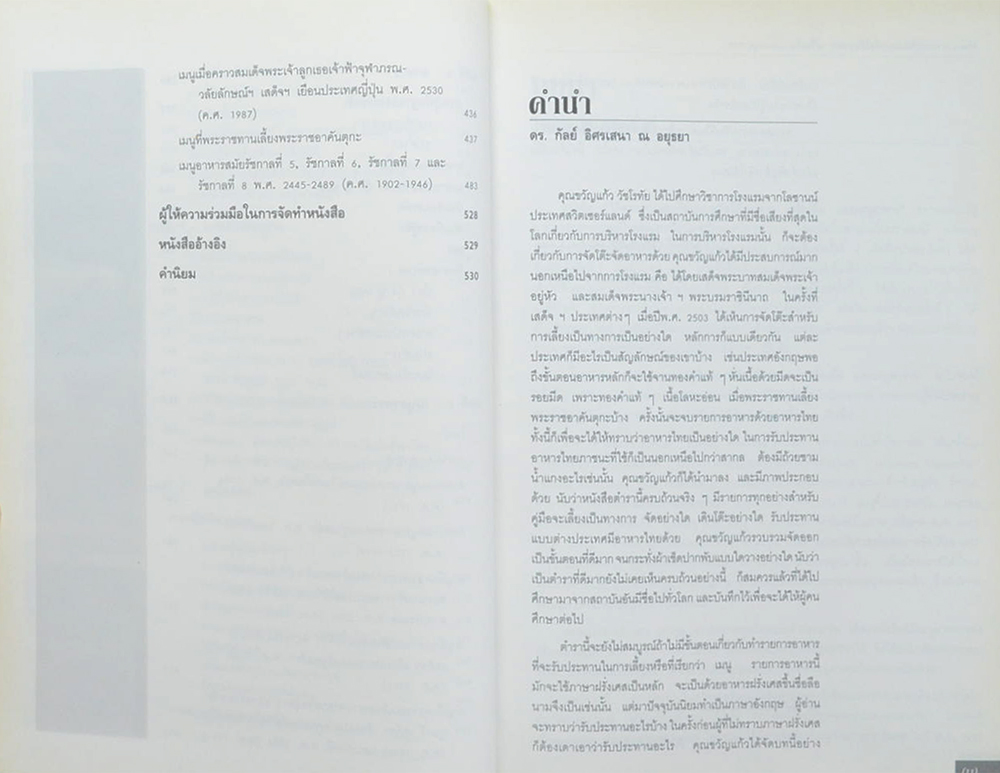 เมนูเมื่อคราวสมเด็จพระเจ้าลูกเธอเจ้าฟ้าจุฬาภรณ-
วลัยลักษณ์ฯ เสด็จฯ เยือนประเทศญี่ปุ่น พ.ศ. 2530
(ค.ศ. 1987) 436
เมนูที่พระราชทานเลี้ยงพระราชอาคันตุกะ 437
เมนูอาหารสมัยรัชกาลที่ 5, รัชกาลที่ 6, รัชกาลที่ 7 และ
รัชกาลที่ 8 พ.ศ. 2445-2489 (ค.ศ. 1902-1946) 483
ผู้ให้ความร่วมมือในการจัดทำหนังสือ 528
หนังสืออ้างอิง 529
คำนิยม 530
คำนำ
ดร. กัลย์ อิศรเสนา ณ อยุธยา
คุณขวัญแก้ว วัชโรทัย ได้ไปศึกษาวิชาการโรงแรมจากโลซานน์
ประเทศสวิตเซอร์แลนด์ ซึ่งเป็นสถาบันการศึกษาที่มีชื่อเสียงที่สุดใน
โลกเกี่ยวกับการบริหารโรงแรม ในการบริหารโรงแรมนั้น ก็จะต้อง
เกี่ยวกับการจัดโต๊ะจัดอาหารด้วย คุณขวัญแก้วได้มีประสบการณ์มาก
นอกเหนือไปจากการโรงแรม คือ ได้โดยเสด็จพระบาทสมเด็จพระเจ้า
อยู่หัว และสมเด็จพระนางเจ้า ฯ พระบรมราชินีนาถ ในครั้งที่
เสด็จ ฯ ประเทศต่างๆ เมื่อปีพ.ศ. 2503 ได้เห็นการจัดโต๊ะสำหรับ
การเลี้ยงเป็นทางการเป็นอย่างใด หลักการก็แบบเดียวกัน แต่ละ
ประเทศก็มีอะไรเป็นสัญลักษณ์ของเขาบ้าง เช่นประเทศอังกฤษพอ
ถึงขั้นตอนอาหารหลักก็จะใช้จานทองคำแท้ ๆ หั่นเนื้อด้วยมีดจะเป็น
รอยมีด เพราะทองคำแท้ ๆ เนื้อโลหะอ่อน เมื่อพระราชทานเลี้ยง
พระราชอาคันตุกะบ้าง ครั้งนั้นจะจบรายการอาหารด้วยอาหารไทย
ทั้งนี้ก็เพื่อจะได้ให้ทราบว่าอาหารไทยเป็นอย่างใด ในการรับประทาน
อาหารไทยภาชนะที่ใช้ก็เป็นนอกเหนือไปกว่าสากล ต้องมีถ้วยชาม
น้ำแกงอะไรเช่นนั้น คุณขวัญแก้วก็ได้นำมาลง และมีภาพประกอบ
ด้วย นับว่าหนังสือตำรานี้ครบถ้วนจริง ๆ มีรายการทุกอย่างสำหรับ
คู่มือจะเลี้ยงเป็นทางการ จัดอย่างใด เดินโต๊ะอย่างใด รับประทาน
แบบต่างประเทศมีอาหารไทยด้วย คุณขวัญแก้วรวบรวมจัดออก
เป็นขั้นตอนที่ดีมาก จนกระทั่งผ้าเช็ดปากพับแบบใดวางอย่างใด นับว่า
เป็นตำราที่ดีมากยังไม่เคยเห็นครบถ้วนอย่างนี้ ก็สมควรแล้วที่ได้ไป
ศึกษามาจากสถาบันอันมีชื่อไปทั่วโลก และบันทึกไว้เพื่อจะได้ให้ผู้คน
ศึกษาต่อไป
ตำรานี้จะยังไม่สมบูรณ์ถ้าไม่มีขั้นตอนเกี่ยวกับทำรายการอาหาร
ที่จะรับประทานในการเลี้ยงหรือที่เรียกว่า เมนู รายการอาหารนี้
มักจะใช้ภาษาฝรั่งเศสเป็นหลัก จะเป็นด้วยอาหารฝรั่งเศสขึ้นชื่อลือ
นามจึงเป็นเช่นนั้น แต่มาปัจจุบันนิยมทำเป็นภาษาอังกฤษ ผู้อ่าน
จะทราบว่ารับประทานอะไรบ้าง ในครั้งก่อนผู้ที่ไม่ทราบภาษาฝรั่งเศส
ก็ต้องเดาเอาว่ารับประทานอะไร คุณขวัญแก้วได้จัดบทนี้อย่าง